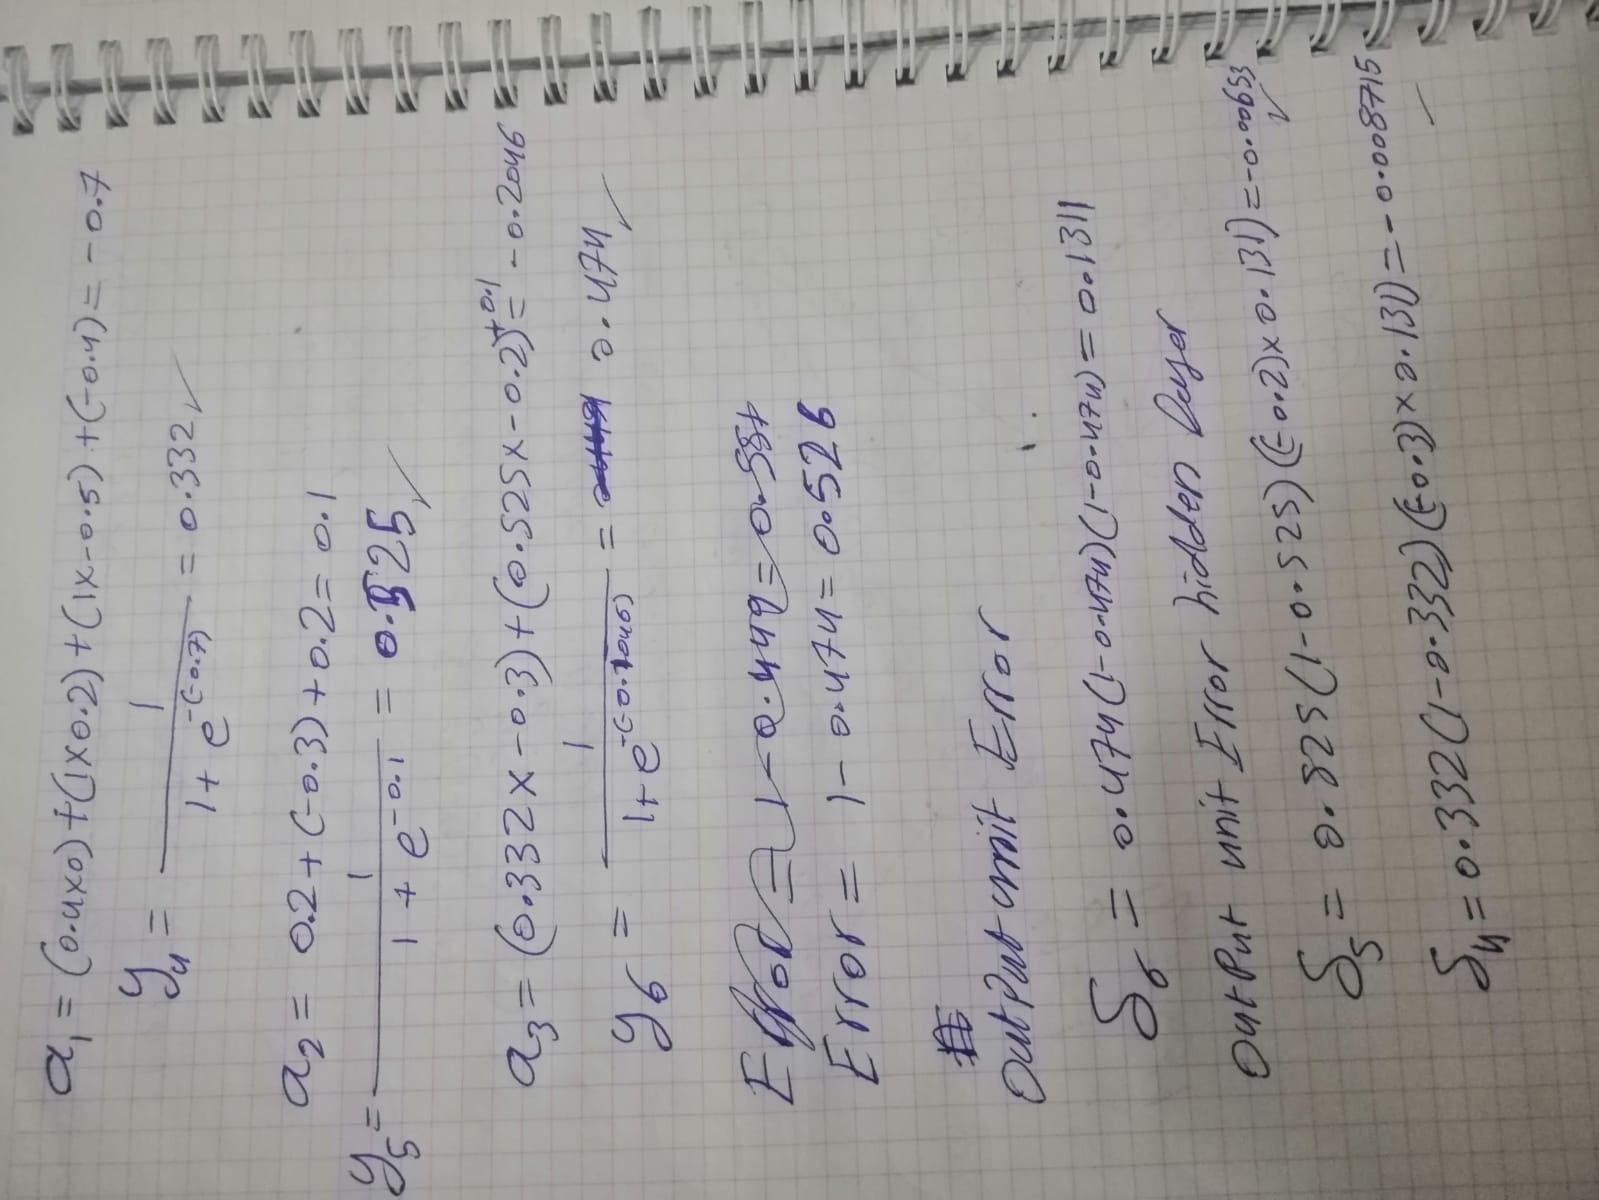 a₁ = (0.4x0) + (1x0.2) + (1x-0.5) + (-0.4) = -0.7
y₄ = 1 / 1 + e^-(-0.7) = 0.332 ✓
a₂ = 0.2 + (-0.3) + 0.2 = 0.1
y₅ = 1 / 1 + e^-0.1 = 0.525 ✓
a₃ = (0.332 x -0.3) + (0.525x -0.2) +0.1 = -0.2046
y₆ = 1 / 1 + e^-(-0.1045) = 0.474 ✓
Error = 1 - 0.449 = 0.551
Error = 1 - 0.474 = 0.526
OutPut unit Error
δ₆ = 0.474(1-0.474)(1-0.474) = 0.1311
OutPut unit Error hidden layer
δ₅ = 0.825(1-0.525)(-0.2)x0.131) = -0.00653 ✓
δ₄ = 0.332(1-0.332)(-0.3)x0.131) = -0.008715 ✓